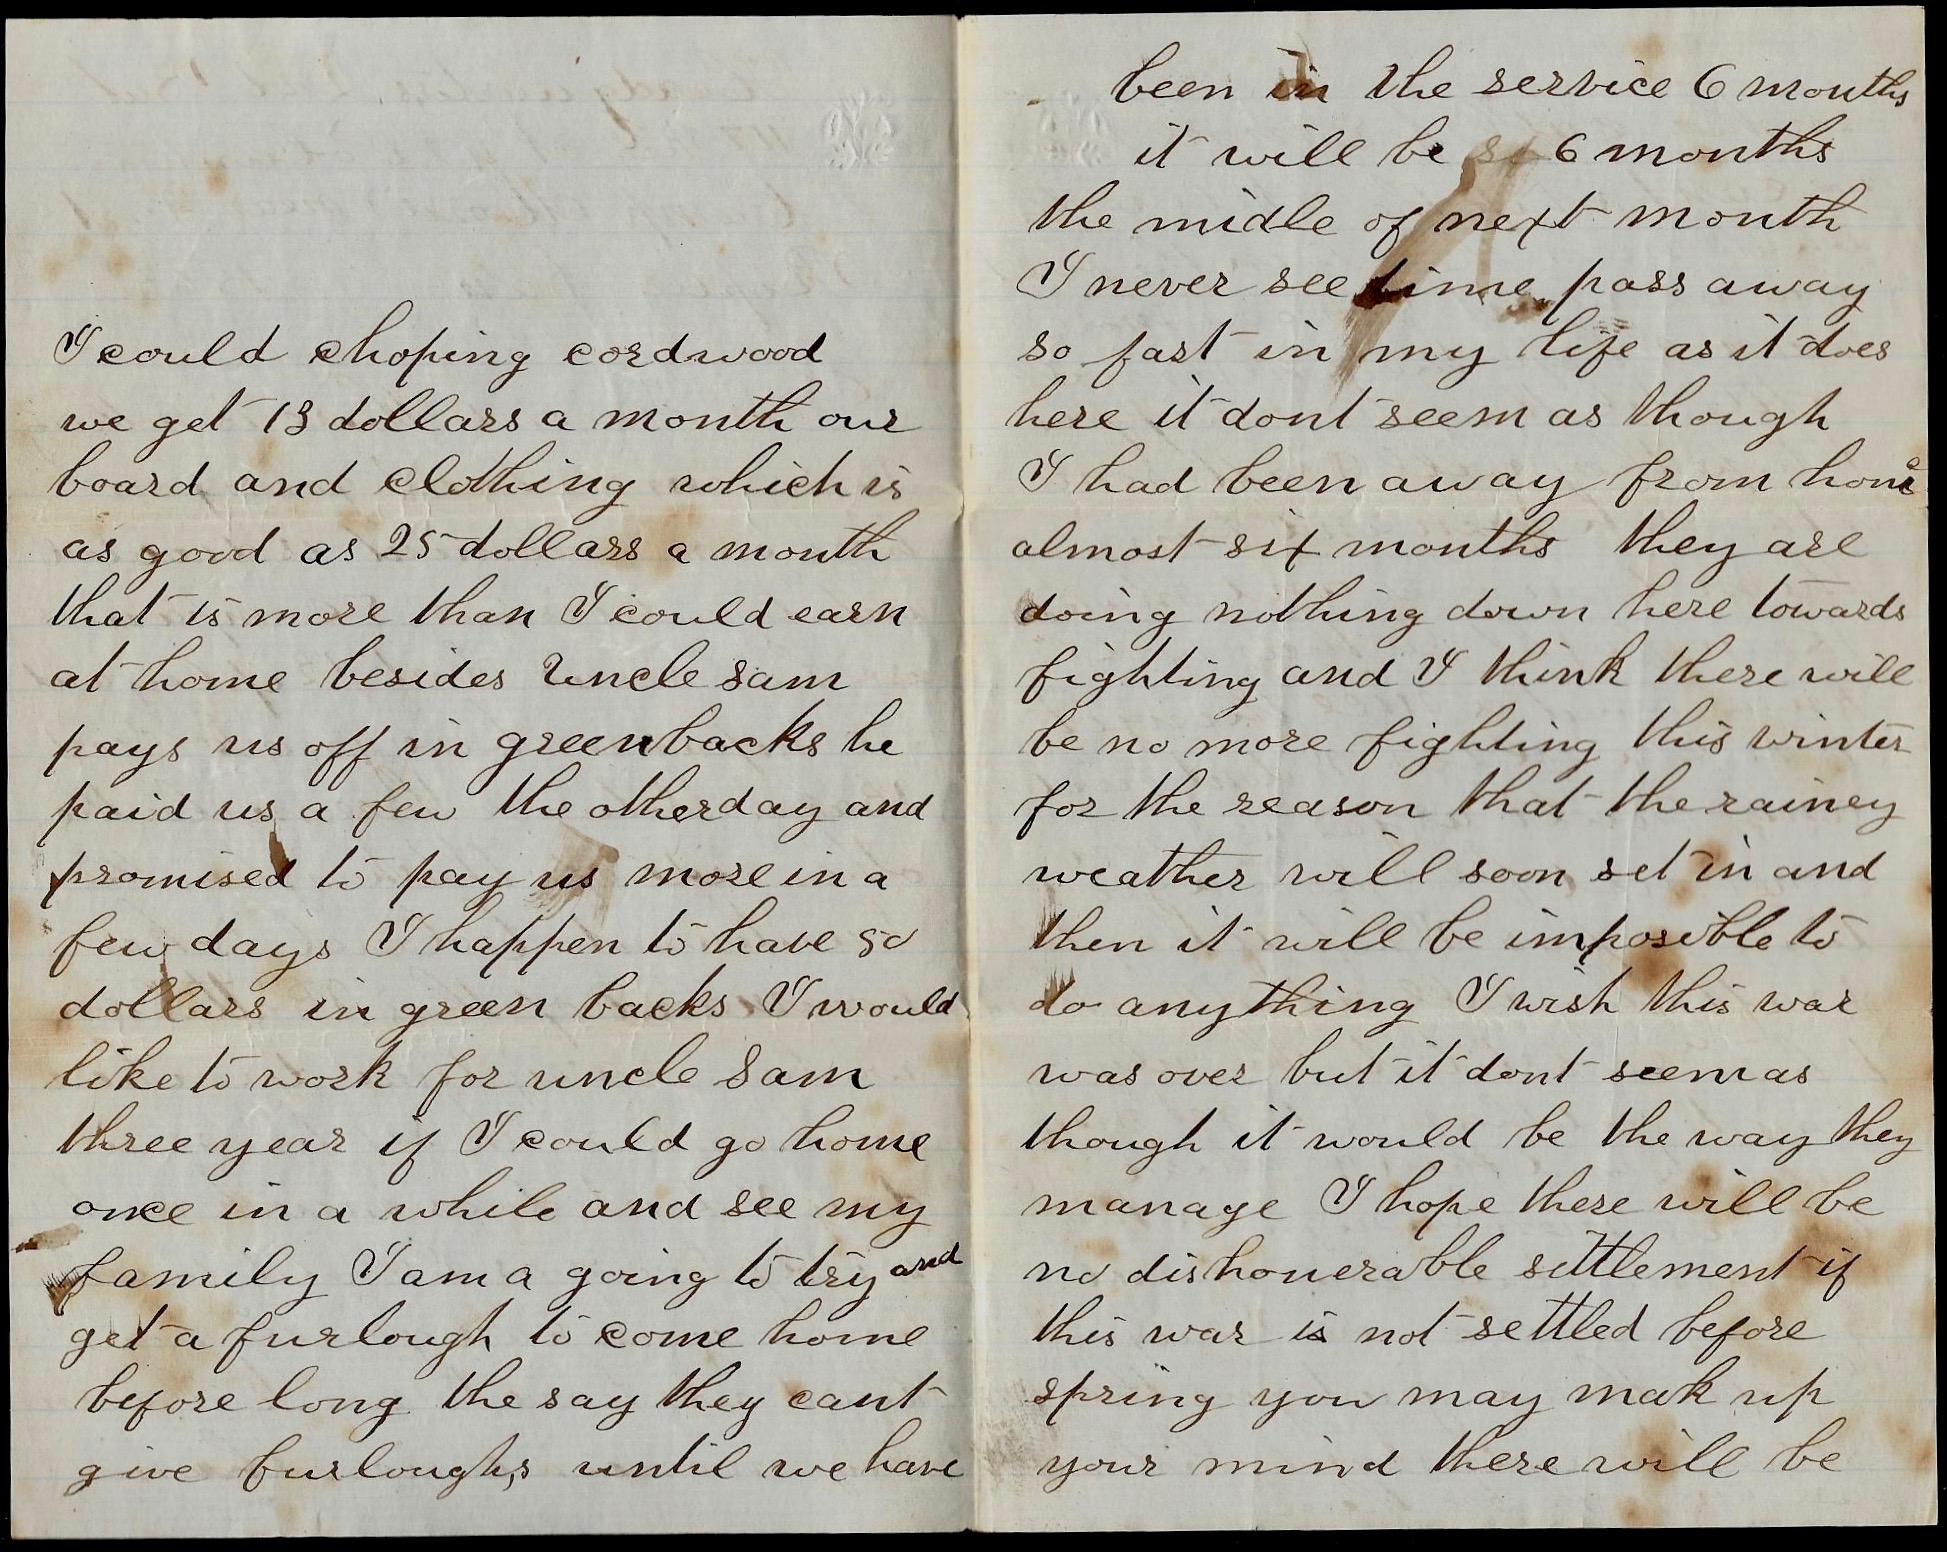 I could choping cordwood
we get 13 dollars a month our
board and clothing which is
as good as 25 dollars a month
that is more than I could earn
at home besides Uncle Sam
pays us off in greenbacks he
paid us a few the otherday and
promised to pay us more in a
few days I happen to have 50
dollars in green backs I would
like to work for uncle Sam
three year if I could go home
once in a while and see my
family I am a going to try and
get a furlough to come home
before long the say they cant
give furloughs until we have
been in the service 6 months
it will be 6 months
the midle of next month
I never see time pass away
so fast in my life as it does
here it dont seem as though
I had been away from home
almost six months they are
doing nothing down here towards
fighting and I think there will
be no more fighting this winter
for the reason that the rainey
weather will soon set in and
then it will be imposible to
do anything I wish this war
was over but it dont seem as
though it would be the way they
manage I hope there will be
no dishonerable settlement if
this war is not settled before
spring you may mak up
your mind there will be